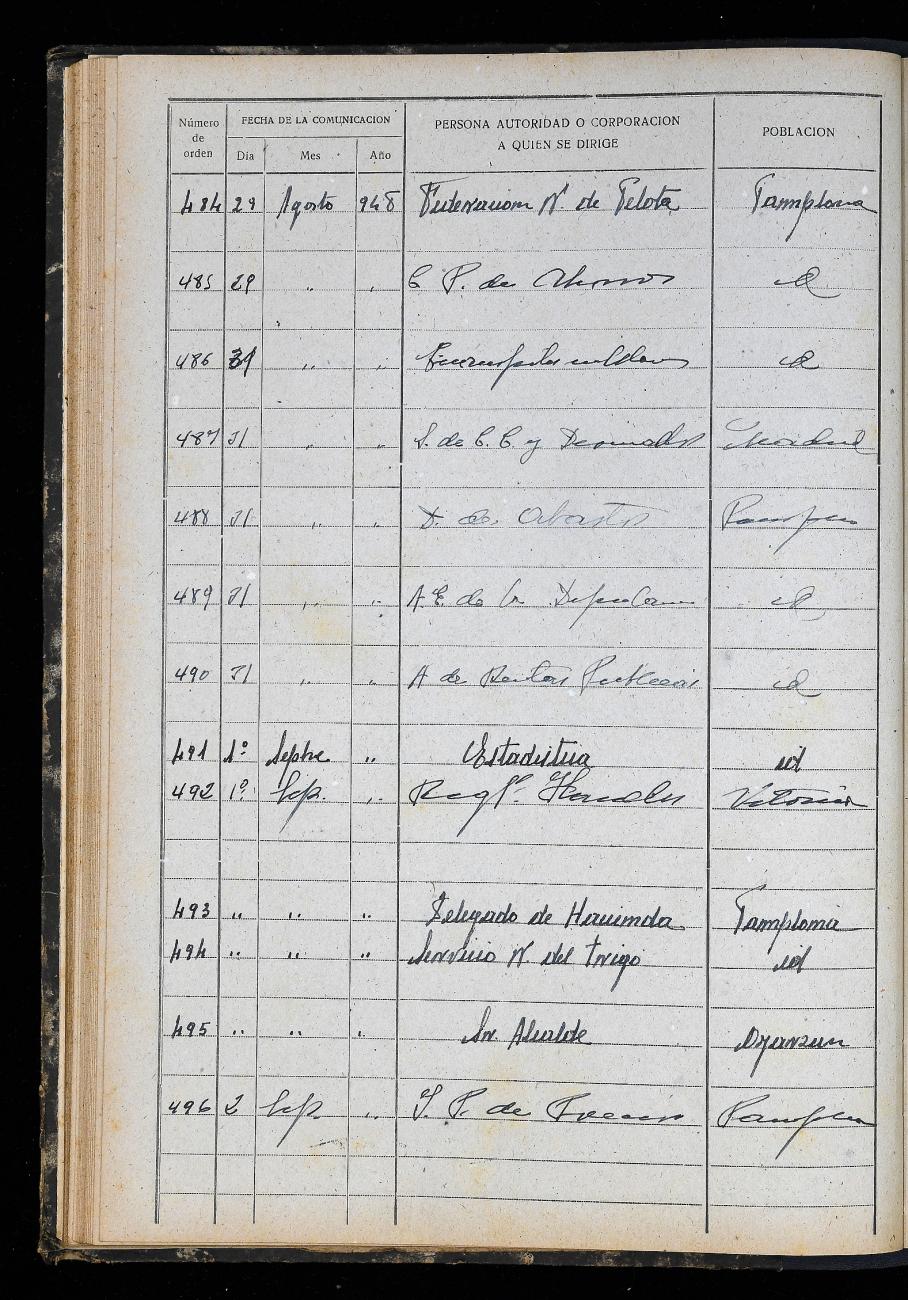 Número de orden FECHA DE LA COMUNICACION PERSONA AUTORIDAD O CORPORACION A QUIEN SE DIRIGE POBLACION
Día Mes Año
484 29 Agosto 948 Federacion N. de Pelota Pamplona
485 29 " " C P. de Ahorros id
486 31 " " id
487 31 " " S. de C. C. y Madrid
488 31 " " D. de Abastos Pamplona
489 31 " " A. E. de la Diputacion id
490 31 " " A de Rentas Publicas id
491 1º Sepbre " Estadistica id
492 1º Sep. " Vitoria
493 " " " Delegado de Hacienda Pamplona
494 " " " Servicio N. del Trigo id
495 " " " Sr. Alcalde Oyarzun
496 2 Sep " Pamplona